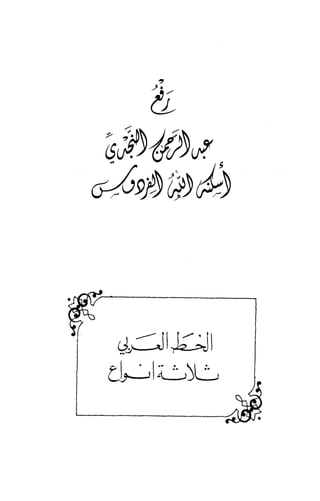 رَفْعُ
عبد الرَّحمن النَّجْدِيِّ
أسكنه اللهُ الفردوس
الخط العربي
ثلاثة انواع